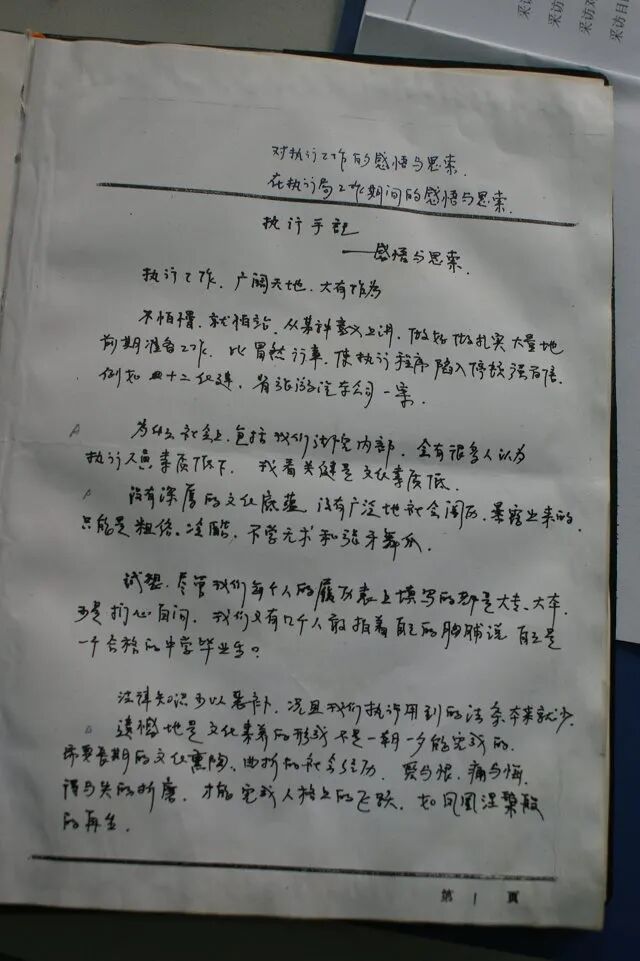 采访
采访对
采访日
对执行工作的感悟与思索
在执行局工作期间的感悟与思索
执行手记
——感悟与思索
执行工作，广阔天地，大有作为
不怕慢，就怕站，从某种意义上讲，做好做扎实大量地
前期准备工作，比冒然行事，使执行程序陷入停顿强百倍。
例如四十二
汽车公司一案。
为什么社会上，包括我们法院内部，会有很多人认为
执行人员素质低下，我看关健是文化素质低。
没有深厚的文化底蕴，没有广泛地社会阅历，暴露出来的
只能是粗俗、冷酷，不学无术和张牙舞爪。
试想，尽管我们每个人的履历表上填写的都是大专、大本，
可是扪心自问，我们又有几个人敢拍着自己的胸脯说自己是
一个合格的中学毕业生？
法律知识可以恶补，况且我们执行用到的法条本来就少。
遗憾地是文化素养的形成不是一朝一夕能完成的。
需要长期的文化熏陶、曲折的社会经历，爱与恨，痛与悔，
得与失的折磨，才能完成人格上的飞跃，如凤凰涅槃般
的再生。
第1页